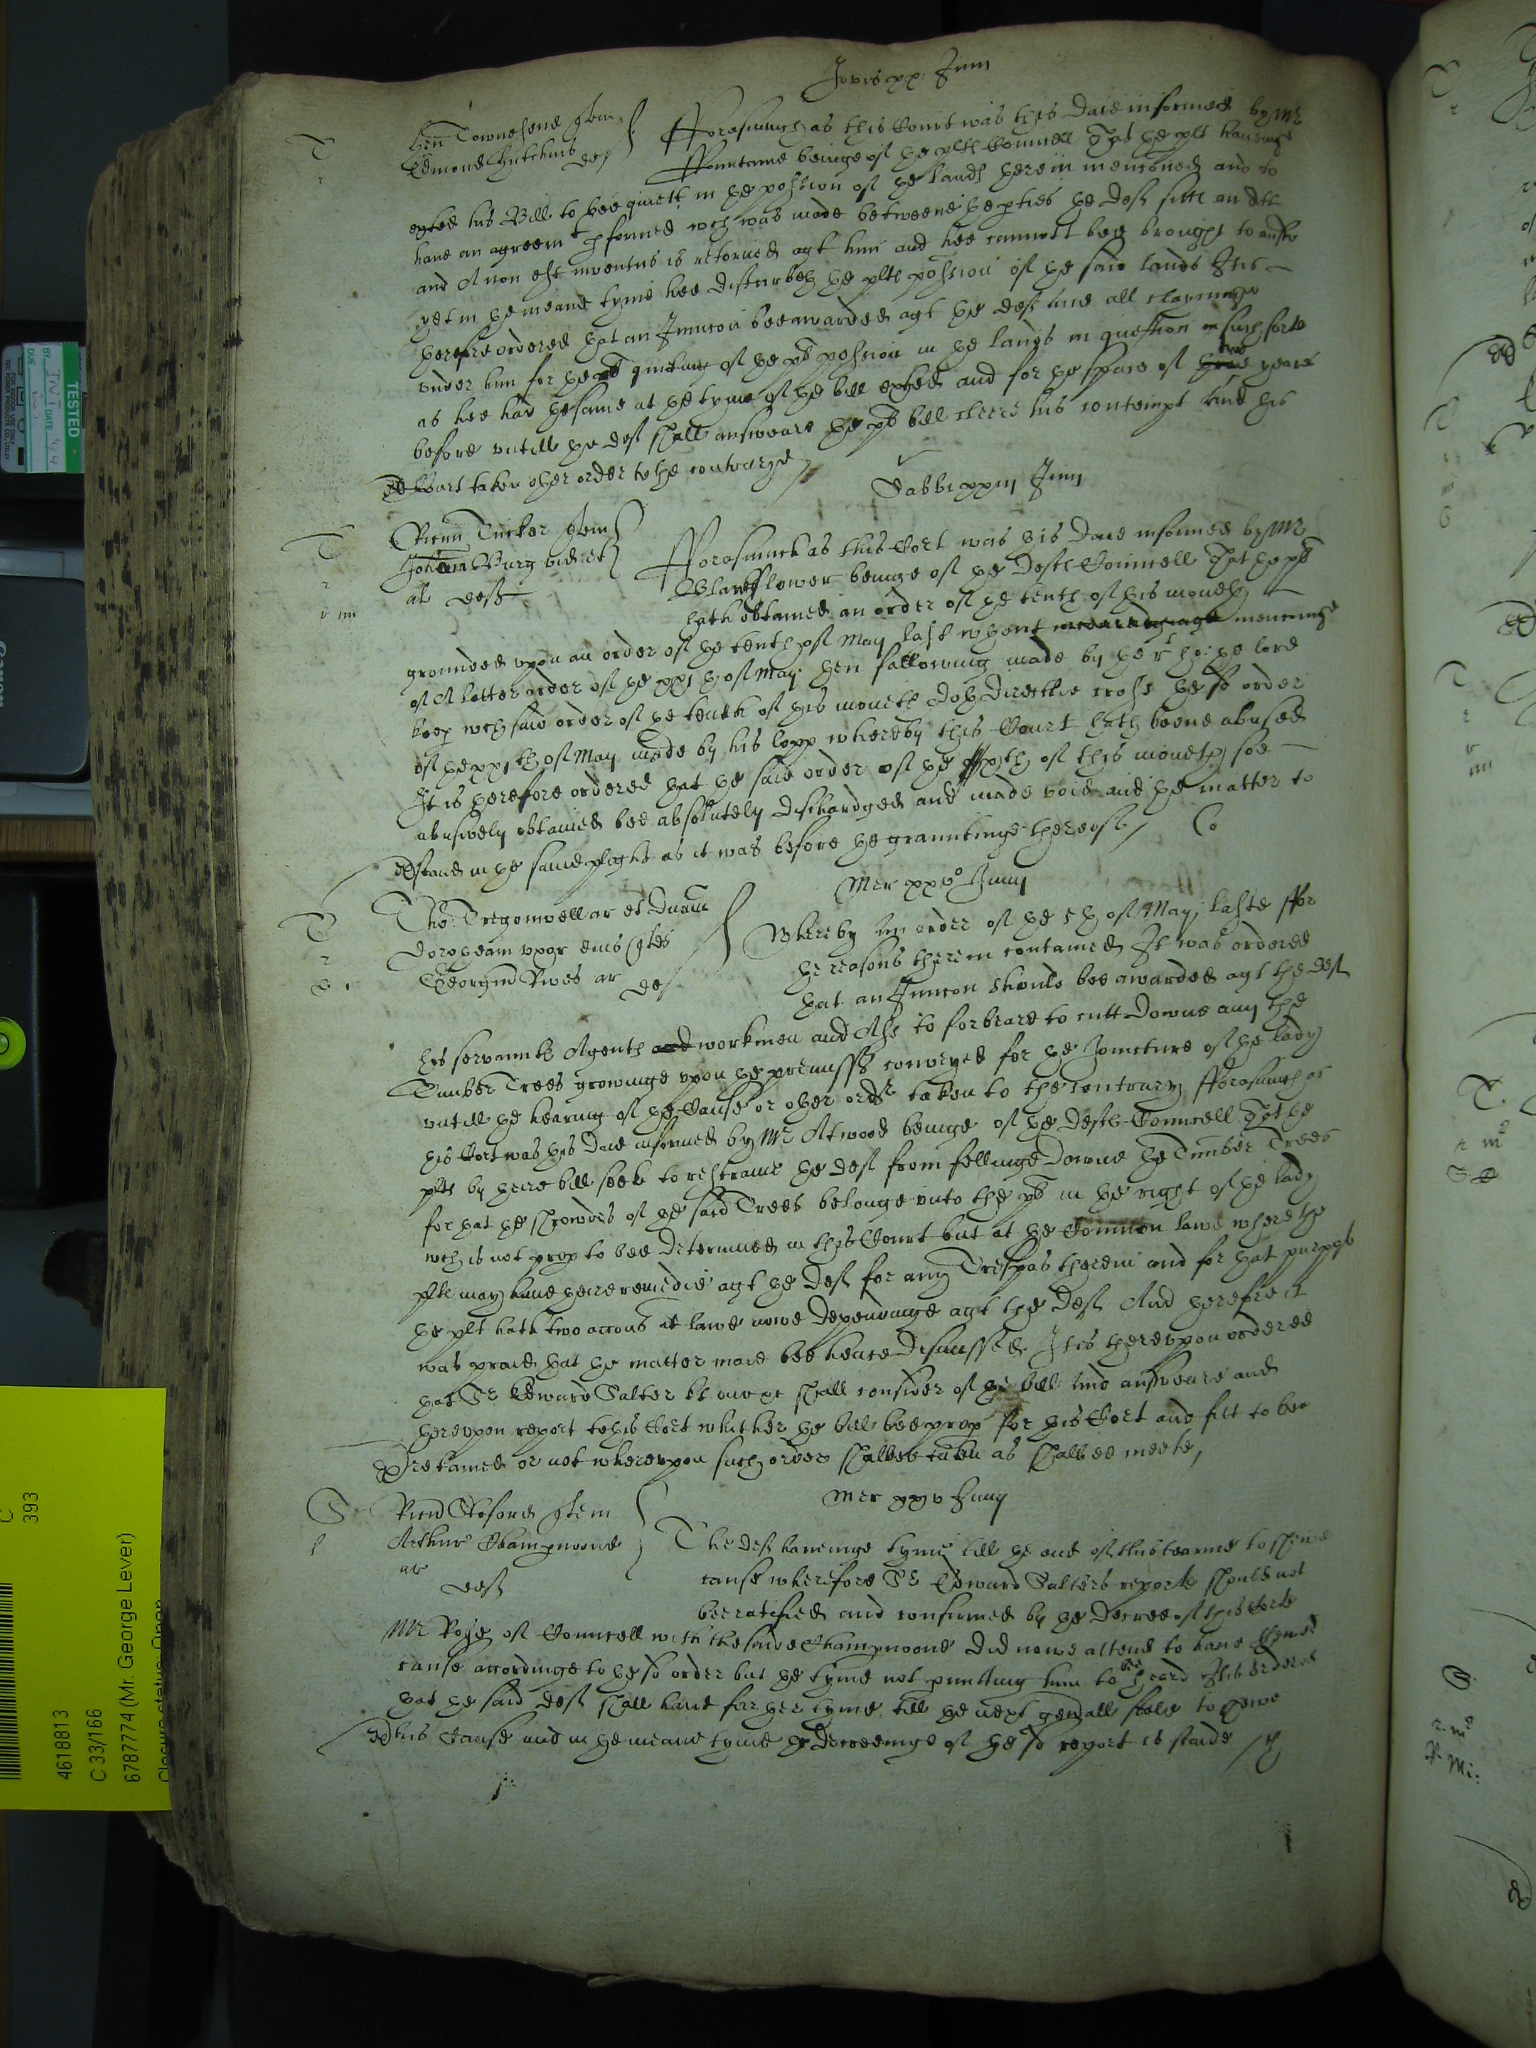 Jovis xx Junii
T
Hen Townesend quer
Edmond Hutchins def
Fforasmuch as this Court was this daie informed by Mr
Ffountaine beinge of the plts Councell That the plt haveinge
his Bill to bee quiett in the possion of the lands therein mencioned and to
have an agreemt pformed wch was made betweene the pties the def sitts out
and A non est inventus is retorned agt him and hee cannott bee brought to answ
yet in the meane tyme hee disturbeth the plts possion of the said lands Itis
therefre ordered tht an Iniunccon bee awarded agt the def and all clayminge
under him for the quietinge of the plts possion in the lands in question in such sorte
as hee had the same at the tyme of the bill exhted and for the space of three yeares
before untill the def shall answeare the plts bill cleere his contempt and this
Court take other order to the contrarye
Sabbi xxiii Junii
T
Ricus Tucker quer
Burg vid et
al defts
Fforasmuch as this Cort was this Daie informed by Mr
flower beinge of the Defts Councell That the plt
hath obtained an order of the tenth of this moneth
grounded upon an order of the tenth of May last wthout mencioninge
of A latter order of the xxj th of May then following made by the r ho: the lord
keep wch said order of the tenth of this moneth doth directlie crosse the sd order
of the xxj th of May made by his lopp whereby this Court hath beene abused
It is therefore ordered that the said order of the xth of this moneth soe
abusively obtained bee absolutely dischardged and made void and the matter to
stand in the same plight as it was before the grauntinge thereof
Mer xxvo Junii
T
Tho: Tregonwell ar et Dnam
Dorotheam uxor eius Qtes
Georgius Rives ar def
Whereby An order of the 5 th of May laste ffor
the reasons therein contained It was ordered
that an Iniunccon should bee awarded agt the def
his servaunts Agents and workmen and Asss to forbeare to cutt downe any the
Timber Trees growinge upon the premisses conveyed for the Joincture of the lady
untill the hearing of the Cause or other ordr taken to the contrary Fforasmuch as
this Cort was this Daie informed by Mr Atwood beinge of the Defts Councell That the
plts by theire bill seek to restraine the def from fellinge downe the Timber Trees
for that the shrowdes of the said Trees belonge unto the plt in the right of the lady
wch is not prop to bee determined in this Court but at the Common lawe where the
plts may have theire remedie agt the def for any Trespas therein and for that purpose
the plt hath two accons at lawe nowe dependinge agt the def And therefre it
was praied that the matter maie bee hence dismissed It is thereupon ordered
that Sr Edward Salter kt shall consider of the bill and answeare and
thereupon report to this Cort whither the bill bee prop for this Cort and fitt to bee
retained or not whereupon such order shalbee taken as shalbee meete
Mer xxv Junii
S
Ricus Stoford qtem
Arthur Champnoone
ar
deft
The def haveinge tyme till the end of this tearme to shew
cause wherefore Sr Edward Salters reporte should not
bee ratified and confirmed by the Decree of this Corte
Mr of Councell with the saide Champnoone did nowe attend to have shewed
cause accordinge to the sd order but the tyme not pmitting him to bee heard It is ordered
that the said deft shall have farther tyme till the next genall seale to shewe
his Cause and in the meane tyme the decreeinge of the sd report is staide
4618813
C 33/166
6787774 (Mr. George Lever)
Closure status: Open
C
393
TESTED
BY
DATE
DUE